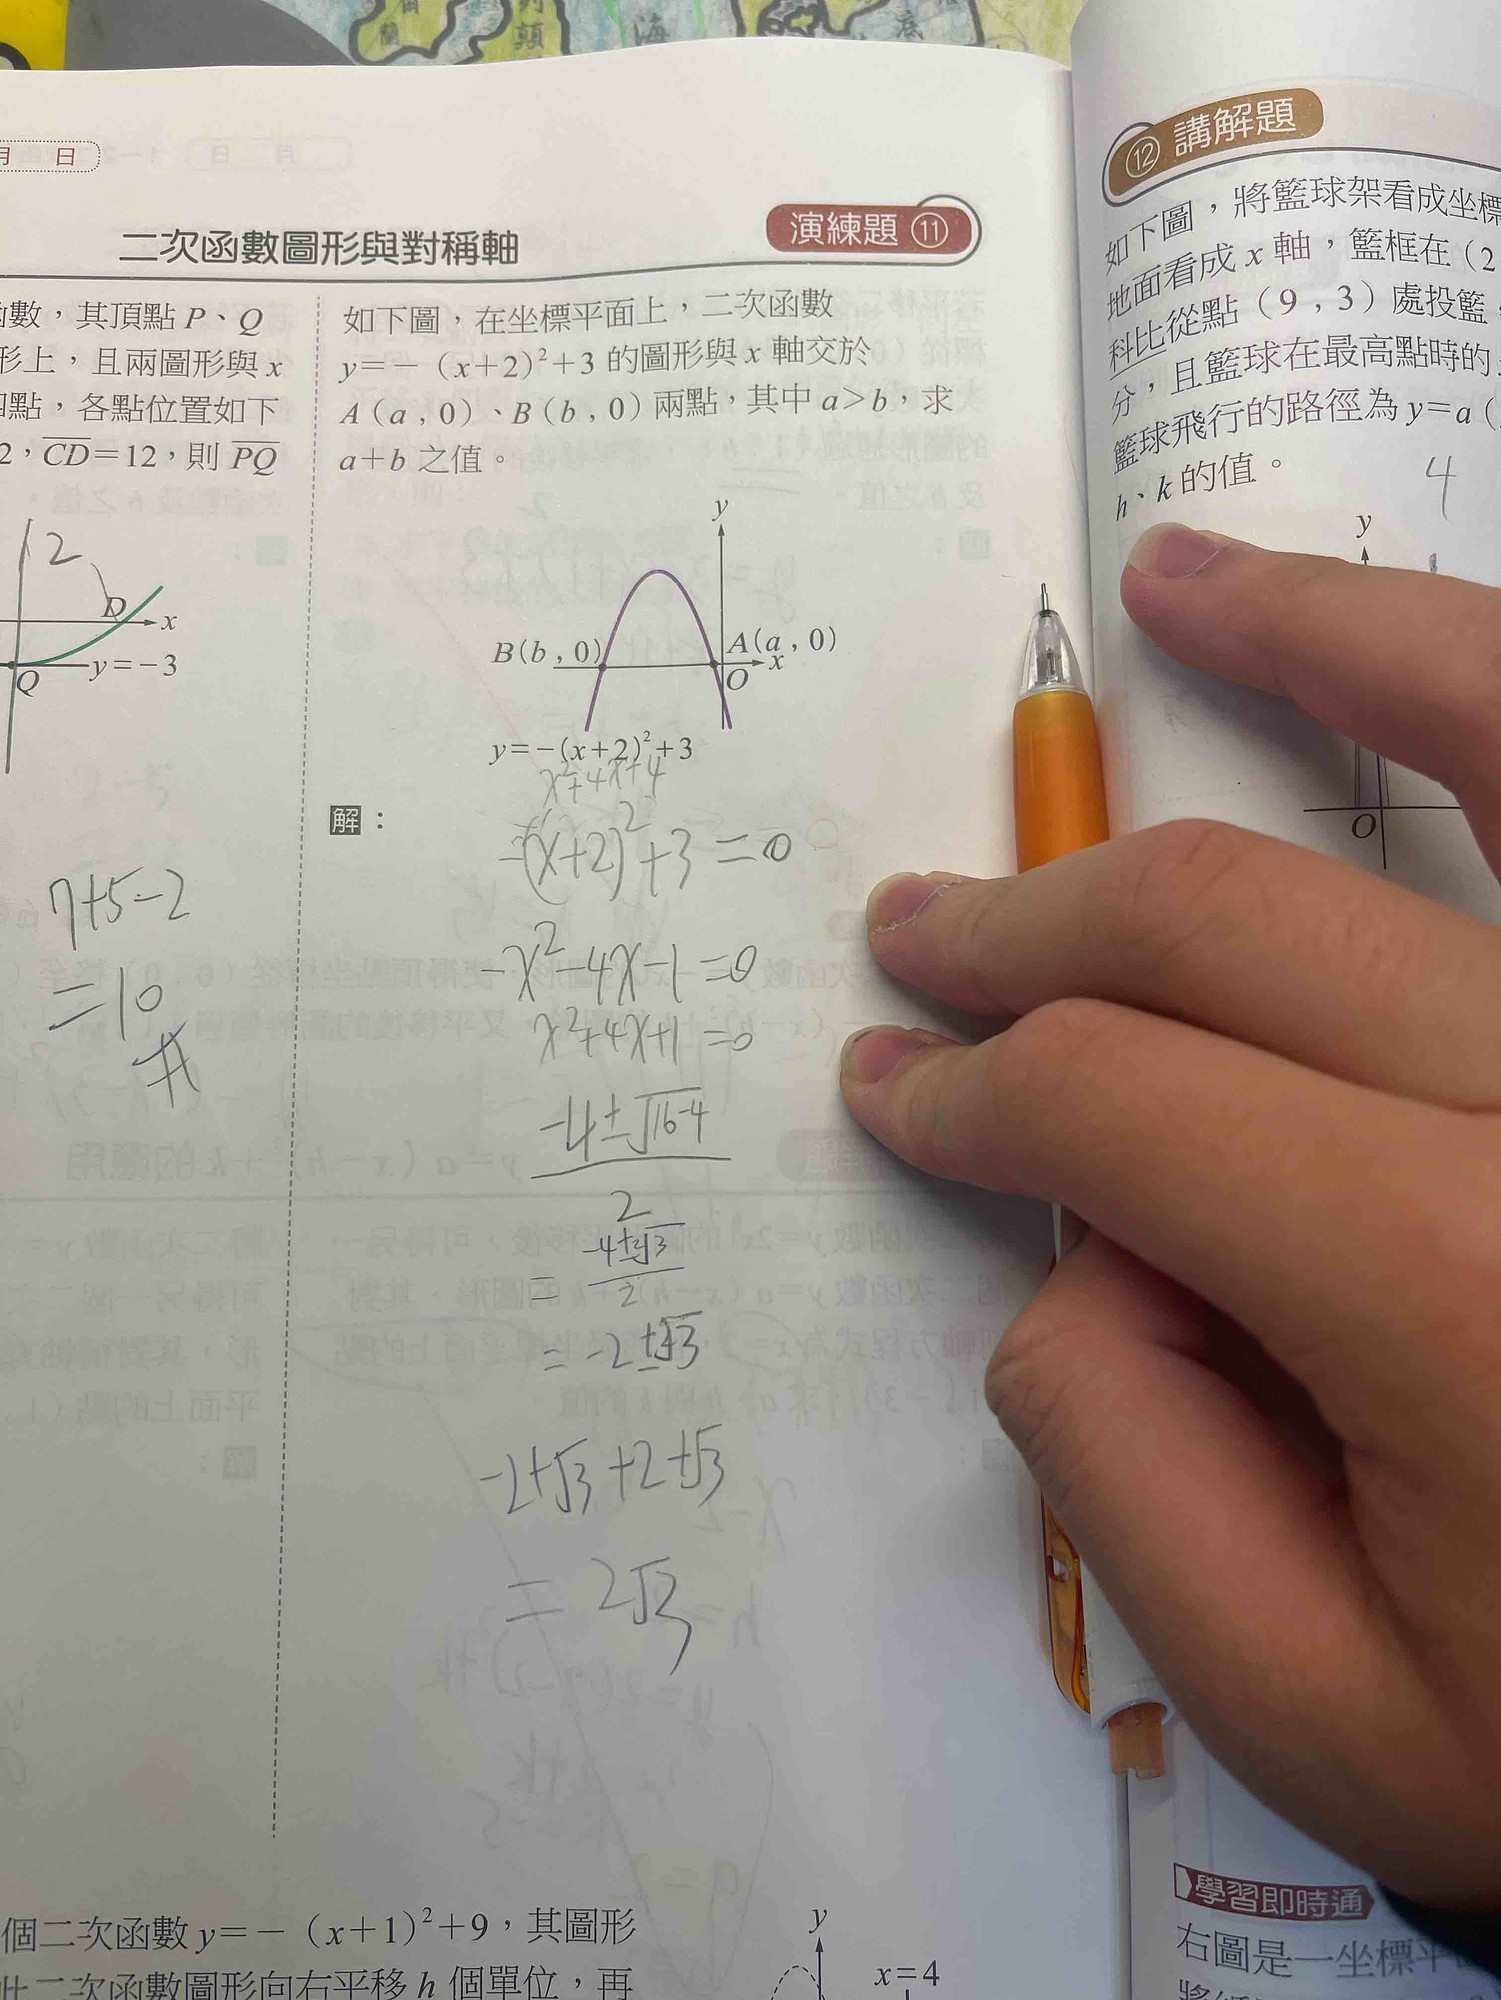 海
底
月 日
二次函數圖形與對稱軸
函數，其頂點 P、Q
形上，且兩圖形與 x
四點，各點位置如下
2，CD＝12，則 PQ
2
D
x
y＝－3
Q
7+5-2
=10
演練題 ⑪
如下圖，在坐標平面上，二次函數
y＝－（x＋2）²＋3 的圖形與 x 軸交於
A（a , 0）、B（b , 0）兩點，其中 a＞b，求
a＋b 之值。
y
B(b , 0)
A(a , 0)
x
O
y＝－(x＋2)²＋3
x²+4x+4
解：
-(x+2)²+3=0
-x²-4x-1=0
x²+4x+1=0
-4±√16-4
2
-4±2√3
=
2
=-2±√3
-2+√3+2+√3
= 2√3
個二次函數 y＝－（x＋1）²＋9，其圖形
此二次函數圖形向右平移 h 個單位，再
y
x＝4
⑫ 講解題
如下圖，將籃球架看成坐標
地面看成 x 軸，籃框在（2
科比從點（9 , 3）處投籃，
分，且籃球在最高點時的
籃球飛行的路徑為 y＝a（
h、k 的值。
4
y
O
學習即時通
右圖是一坐標平